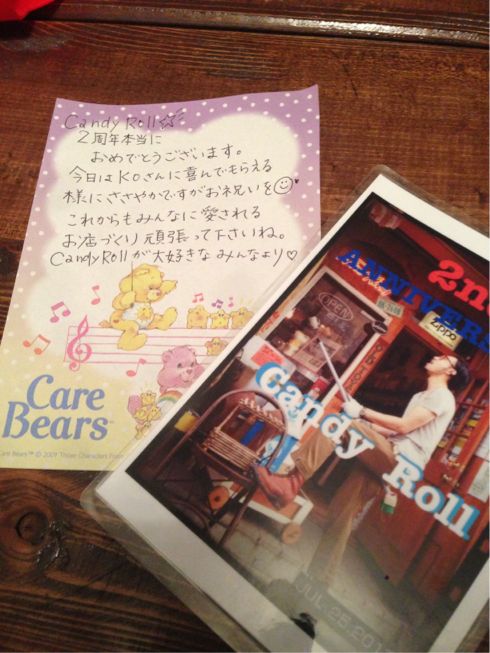 Candy Roll☆
2周年本当に
おめでとうございます。
今日はKOさんに喜んでもらえる
様にささやかですがお祝いを☺
これからもみんなに愛される
お店づくり頑張って下さいね。
Candy Rollが大好きなみんなより♡
Care
Bears™
Care Bears™ © 2009 Those Characters From
2nd
ANNIVERS
OPEN
Zippo
Candy Roll
JUL.25.201